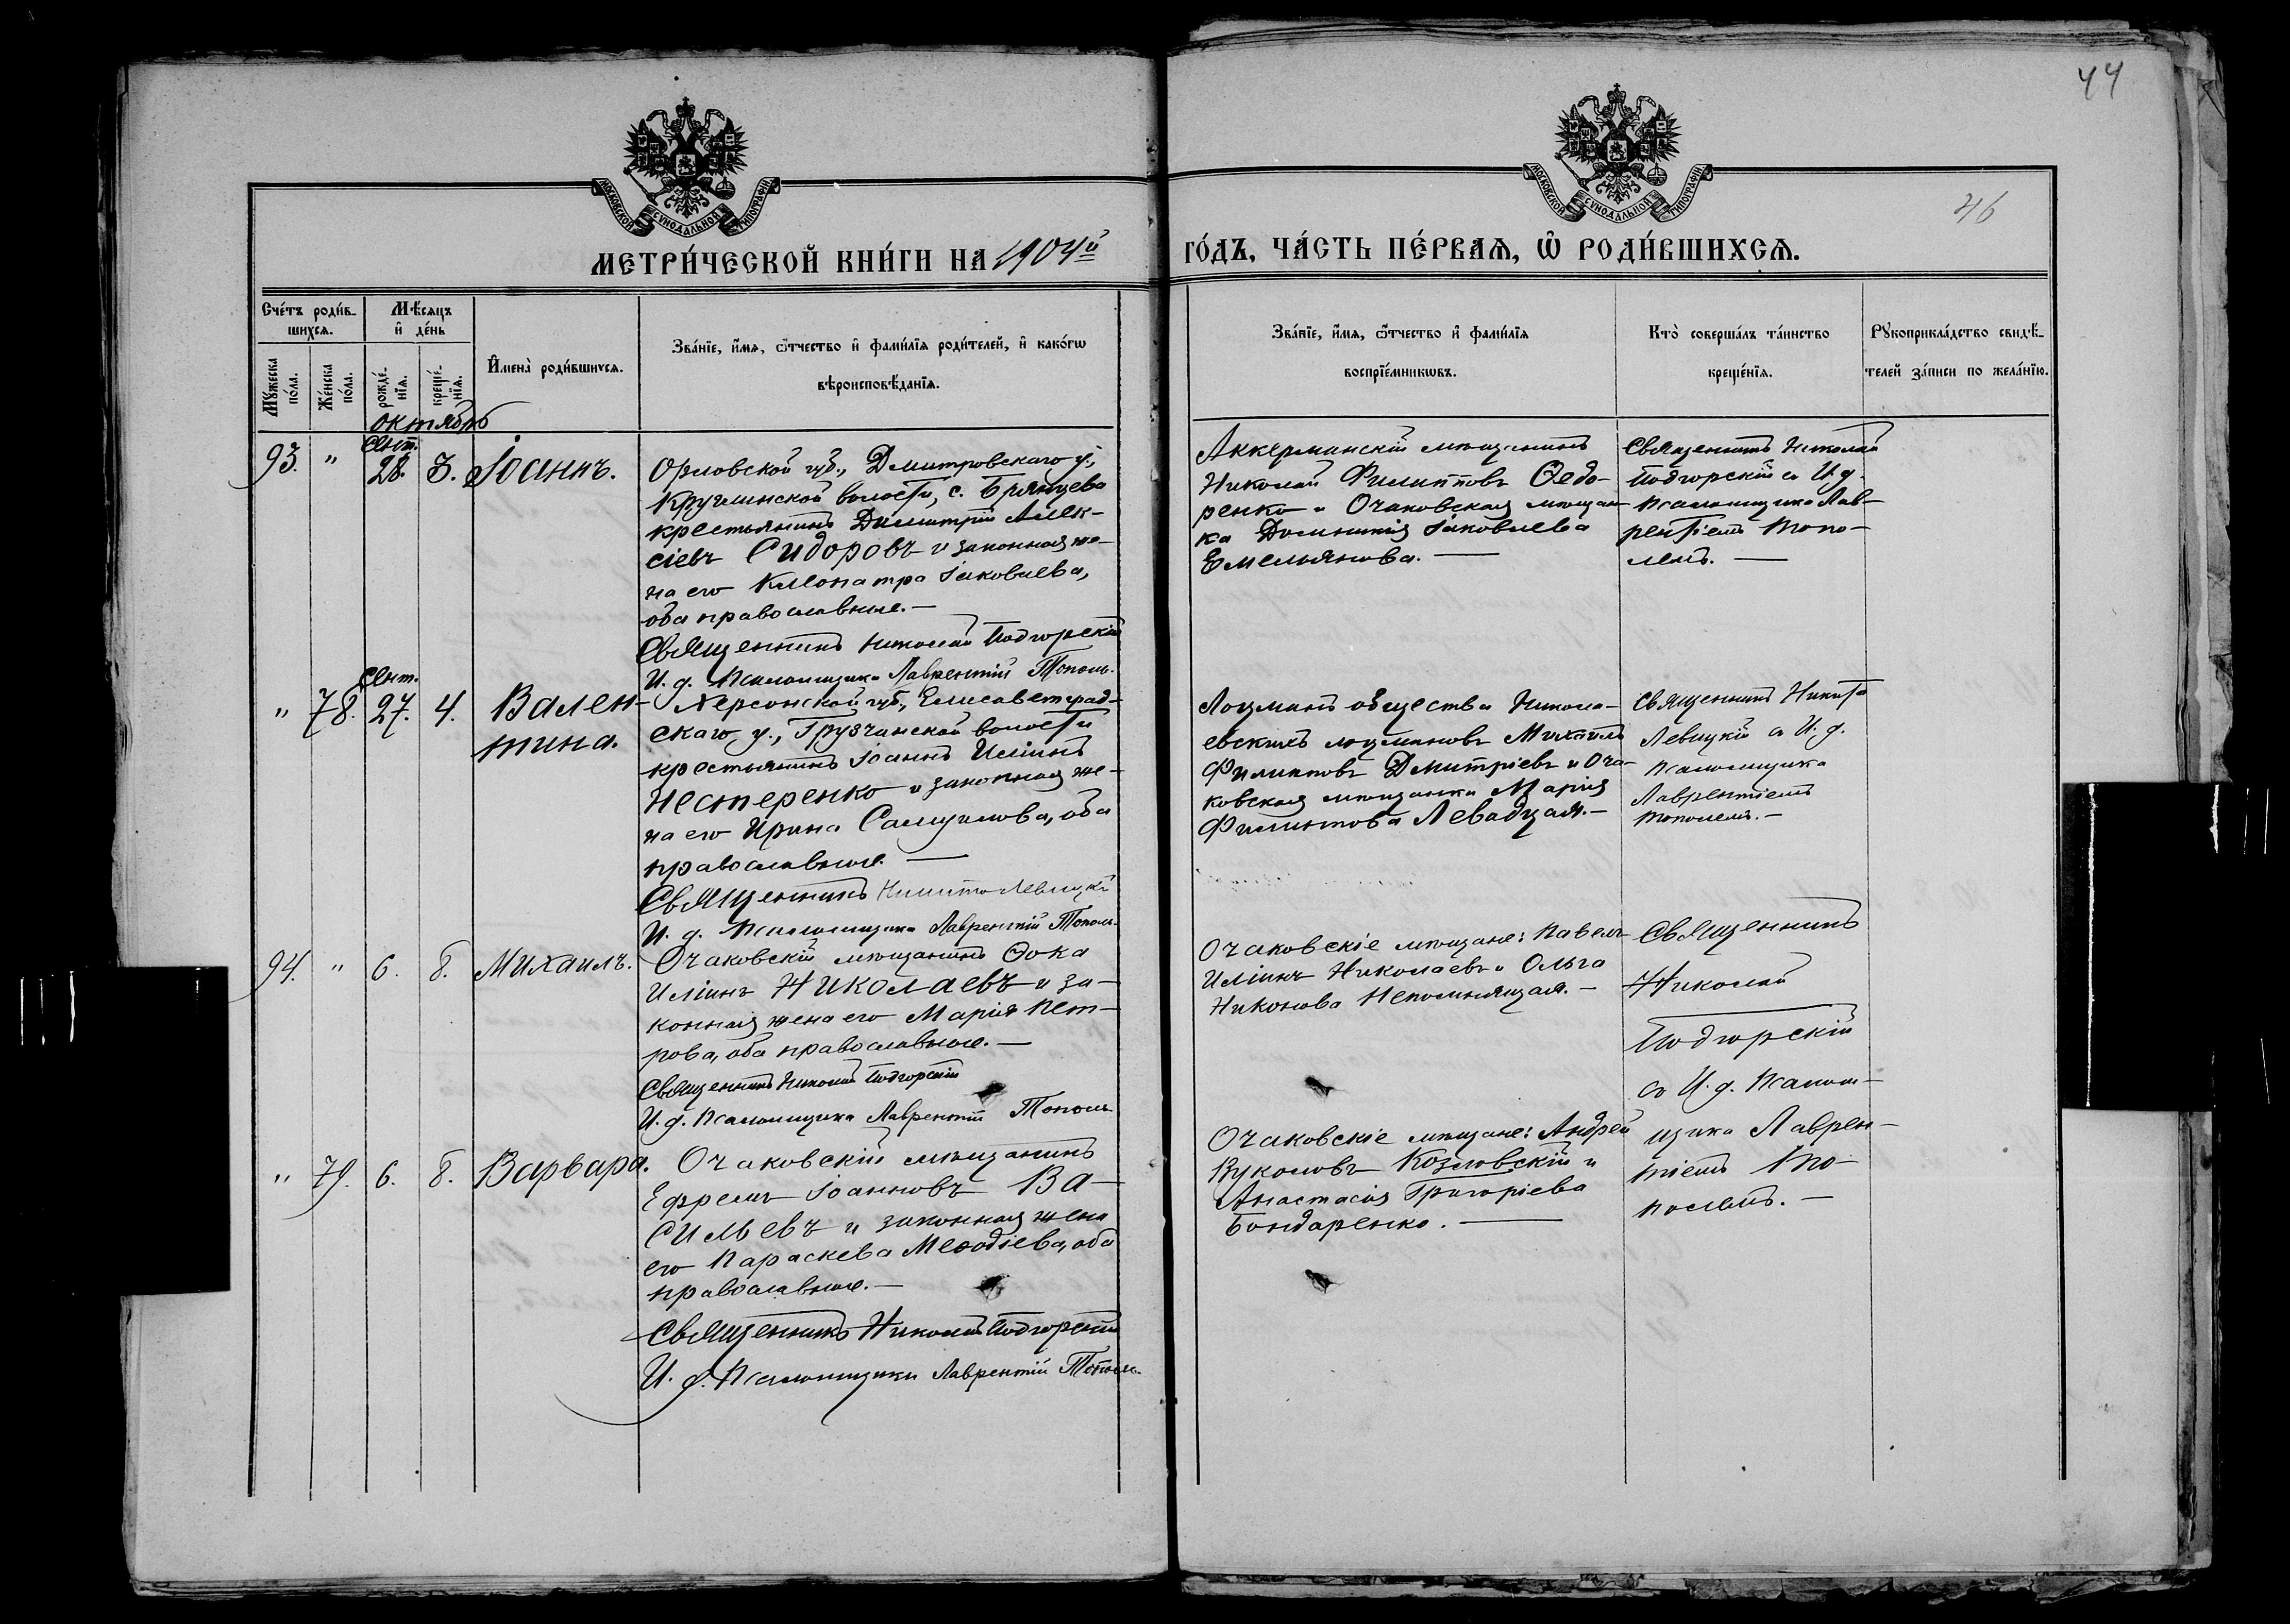 44
46
МОСКОВСКОЙ СѴНОДАЛЬНОЙ ТИПОГРАФІИ
МОСКОВСКОЙ СѴНОДАЛЬНОЙ ТИПОГРАФІИ
МЕТРИ́ЧЕСКОЙ КНИ́ГИ НА 1904й
ГО́ДЪ, ЧА́СТЬ ПЕ́РВАѦ, Ѡ РОДИ́ВШИХСѦ.
Сче́тъ роди́в-
шихсѧ.
Мѣ́сѧцъ
и де́нь
Мꙋ́жеска
по́ла.
Же́нска
по́ла.
рожде́-
нїѧ.
креще́-
нїѧ.
Имена̀ роди́вшихсѧ.
Зва́нїе, и́мѧ, ѻ҆́тчество и фами́лїѧ роди́телей, и како́гѡ
вѣроисповѣ́данїѧ.
Зва́нїе, и́мѧ, ѻ҆́тчество и фами́лїѧ
воспрїе́мникѡвъ.
Кто̀ соверша́лъ та́инство
креще́нїѧ.
Рꙋкоприкла́дство свидѣ́-
телей за́писи по жела́нїю.
октябрь
93. " Сент. 28. 3. Іоаннъ.
Орловской губ., Дмитровскаго у.,
Круглинской волости, с. Брянцева
крестьянинъ Димитрій Алек-
сіевъ Сидоровъ и законная же-
на его Клеопатра Іаковлева,
оба православные. —
Священникъ Николай Подгорскій
И. д. Псаломщика Лаврентій Тополь.
Аккерманскій мѣщанинъ
Николай Филипповъ Ѳедо-
ренко и Очаковская мѣщан-
ка Домникія Іаковлева
Емельянова. —
Священникъ Николай
Подгорскій съ И. д.
Псаломщика Лав-
рентіемъ Топо-
лемъ. —
" 78. Сент. 27. 4. Вален-
тина.
Херсонской губ., Елисаветград-
скаго у., Грузчанской волости
крестьянинъ Іоаннъ Иліинъ
Нестеренко и законная же-
на его Ирина Самуилова, оба
православные. —
Священникъ Никита Левицкій
И. д. Псаломщика Лаврентій Тополь.
Лоцманъ общества Никола-
евскихъ лоцмановъ Михаилъ
Филипповъ Дмитріевъ и Оча-
ковская мѣщанка Марія
Филиппова Левадцая. —
Священникъ Никита
Левицкій съ И. д.
Псаломщика
Лаврентіемъ
Тополемъ. —
94. " 6. 8. Михаилъ.
Очаковскій мѣщанинъ Ѳока
Иліинъ Николаевъ и за-
конная жена его Марія Пет-
рова, оба православные. —
Священникъ Николай Подгорскій
И. д. Псаломщика Лаврентій Тополь
Очаковскіе мѣщане: Павелъ
Иліинъ Николаевъ и Ольга
Никонова Непомнящая. —
Священникъ
Николай
Подгорскій
съ И. д. Псалом-
щика Лаврен-
тіемъ То-
полемъ. —
" 79. 6. 8. Варвара.
Очаковскій мѣщанинъ
Ефремъ Іоанновъ Ва-
сильевъ и законная жена
его Параскева Меѳодіева, оба
православные. —
Священникъ Николай Подгорскій
И. д. Псаломщика Лаврентій Тополь.
Очаковскіе мѣщане: Андрей
Вуколовъ Козловскій и
Анастасія Григоріева
Бондаренко. —